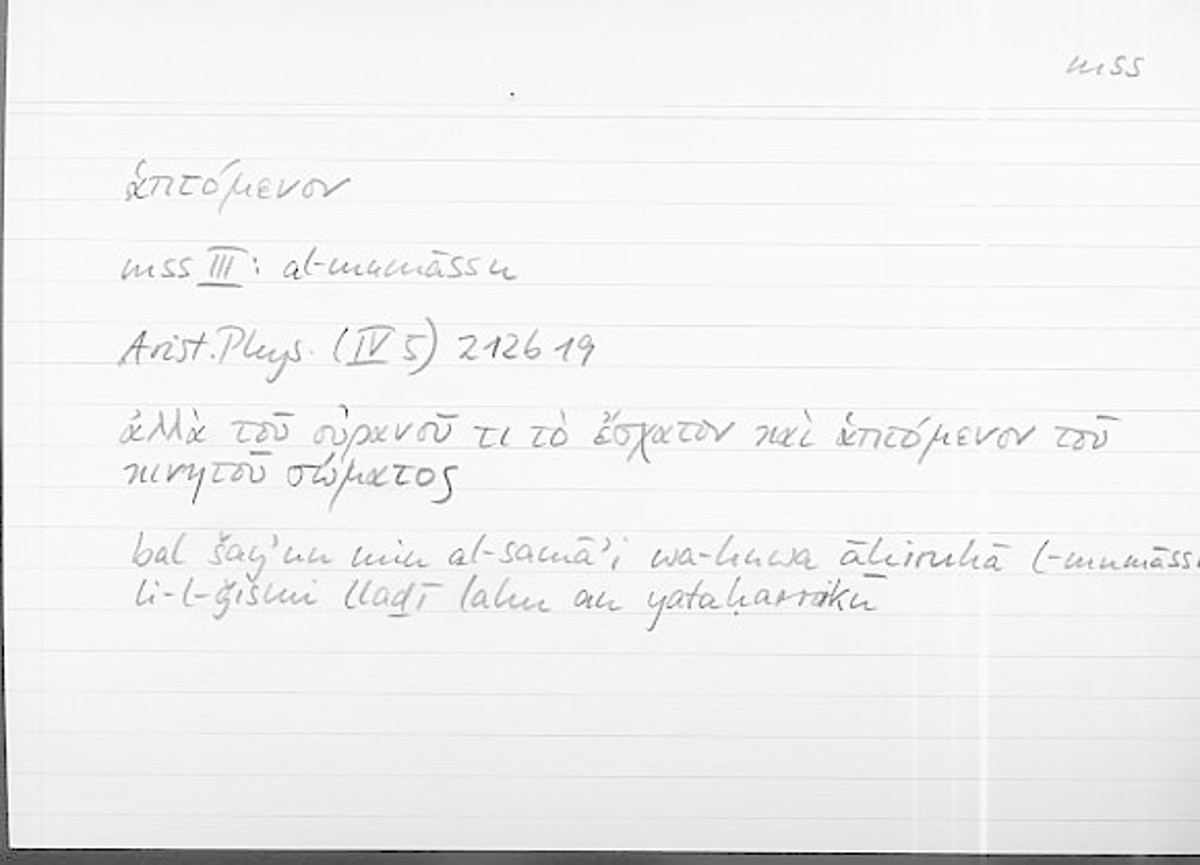 mss
ἁπτόμενον
mss III: al-mumāssu
Arist. Phys. (IV 5) 212b19
ἀλλὰ τοῦ οὐρανοῦ τι τὸ ἔσχατον καὶ ἁπτόμενον τοῦ
κινητοῦ σώματος
bal šay'un min al-samā'i wa-huwa āḫiruhā l-mumāssu
li-l-ǧismi llaḏī lahu an yataḥarrakū